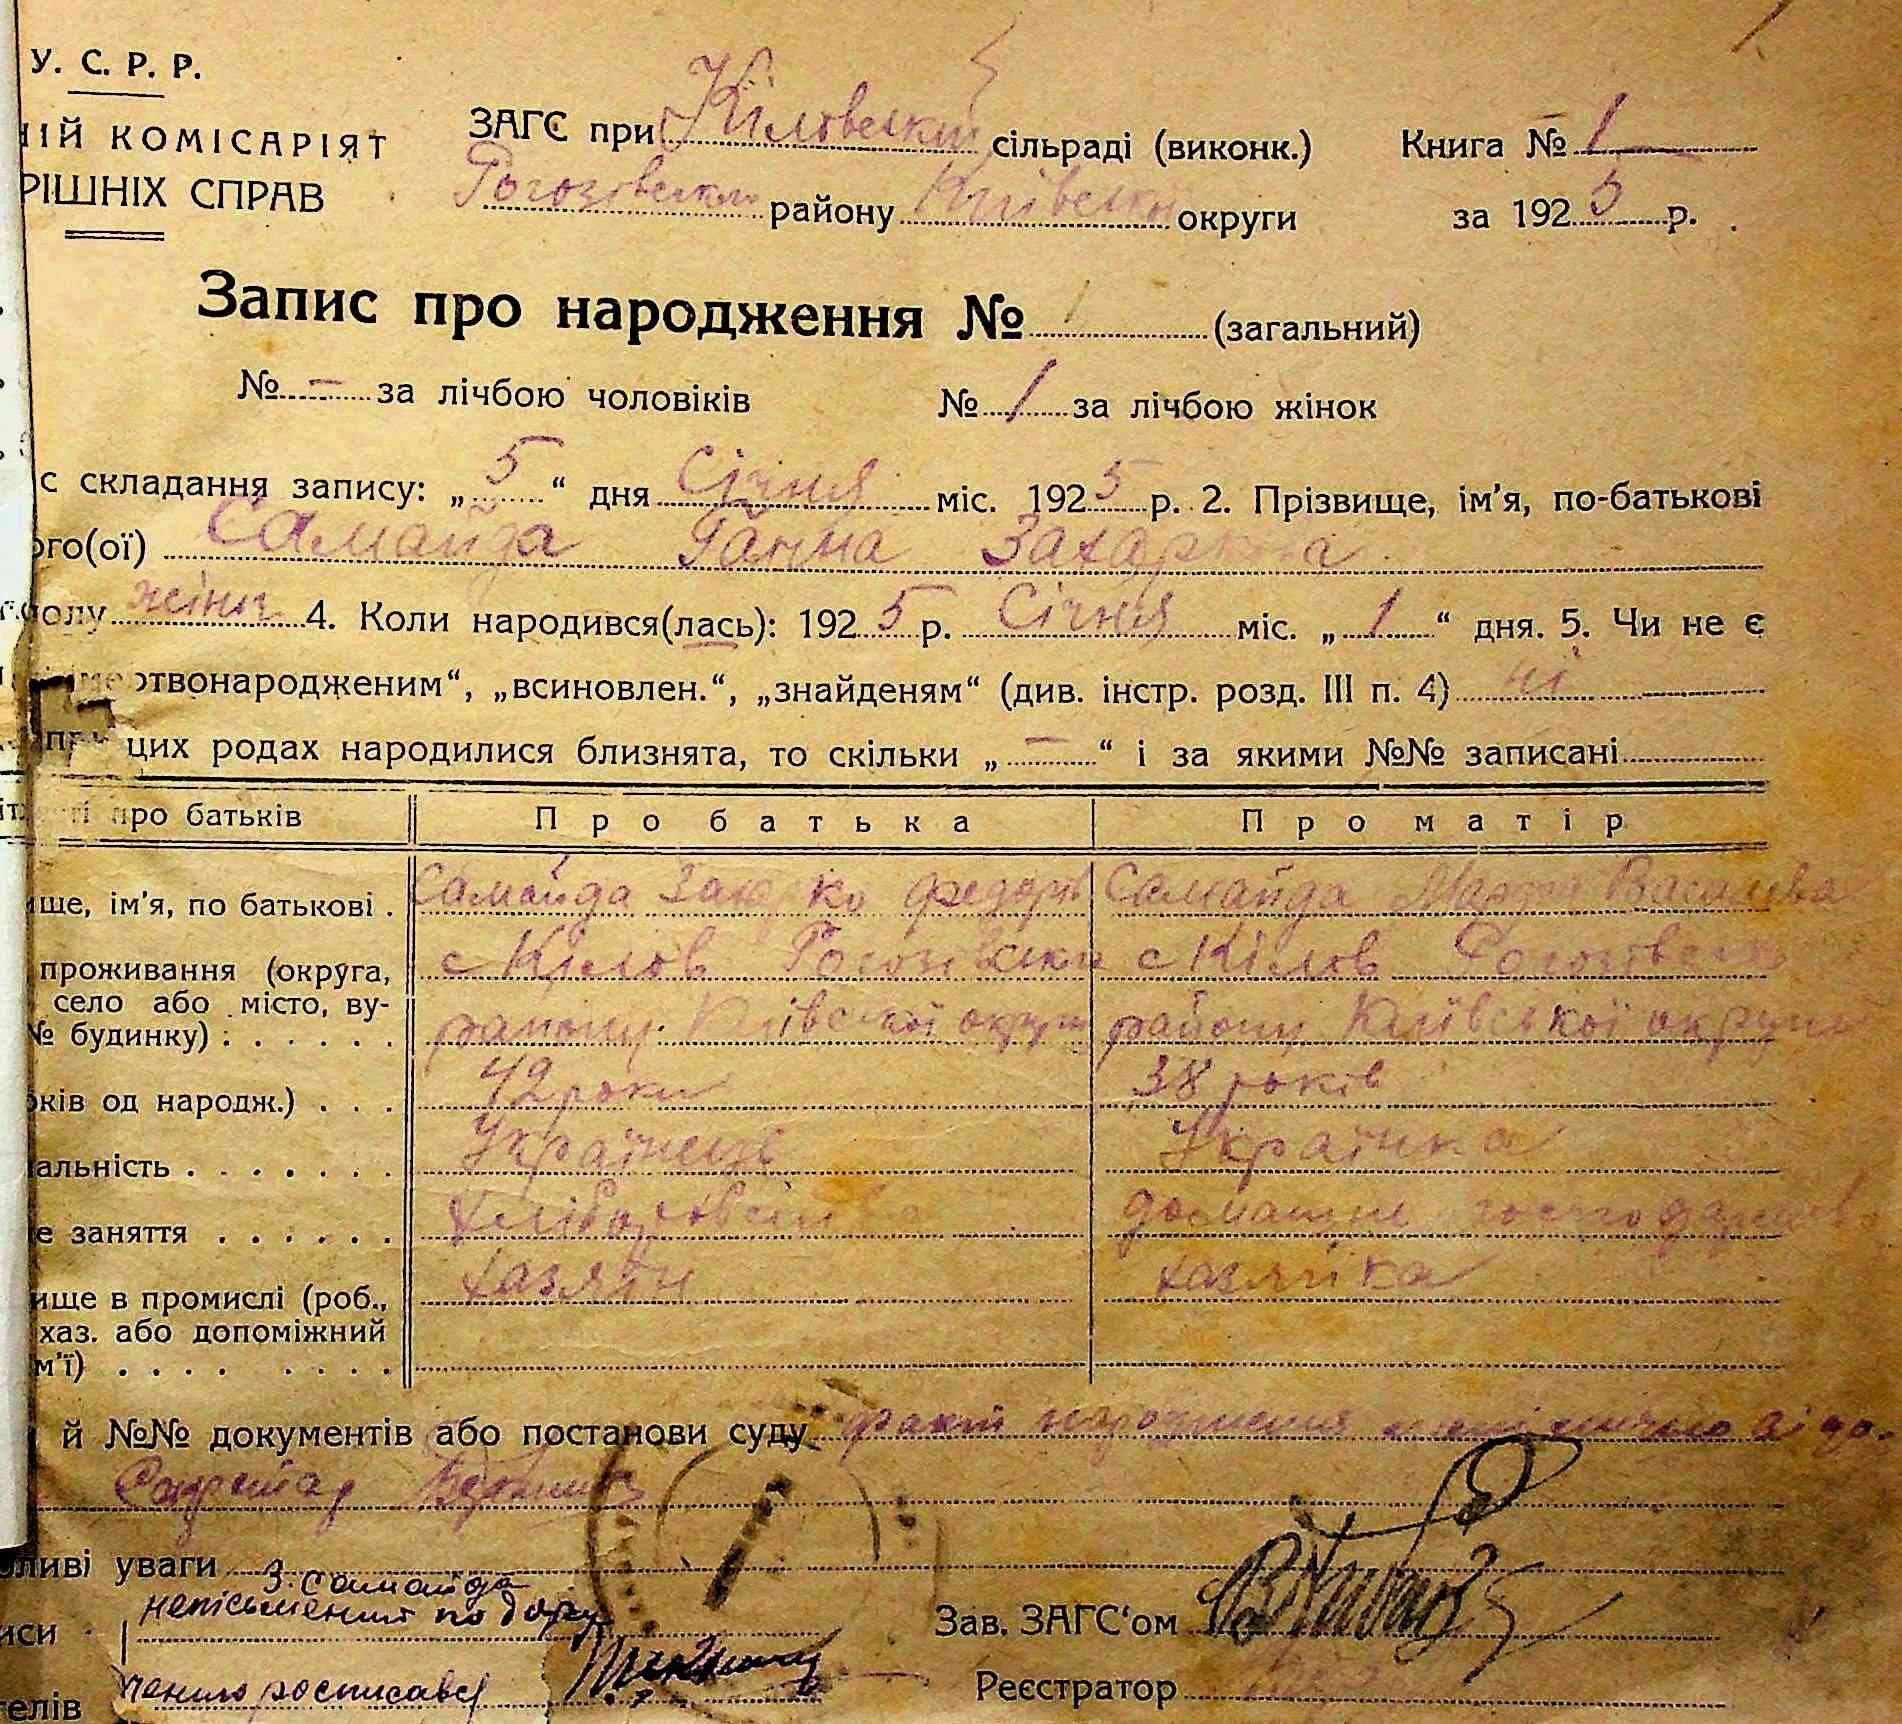 У. С. Р. Р.
НІЙ КОМІСАРІЯТ
РІШНІХ СПРАВ
ЗАГС при Кіловській сільраді (виконк.)
Рогозівського району Київської округи
Книга № 1
за 1925 р.
Запис про народження № 1 (загальний)
№ - за лічбою чоловіків № 1 за лічбою жінок
с складання запису: „5“ дня Січня міс. 1925 р. 2. Прізвище, ім'я, по-батькові
ого(ої) Самайда Ганна Захарківа
полу жіноч 4. Коли народився(лась): 1925 р. Січня міс. „1“ дня. 5. Чи не є
отвонародженим“, „всиновлен.“, „знайденям“ (див. інстр. розд. III п. 4) ні
при цих родах народилися близнята, то скільки „-“ і за якими №№ записані
про батьків Про батька Про матір
ще, ім'я, по батькові . Самайда Захарко Федорів Самайда Марфа Василева
проживання (округа, с Кілов Рогозівськ с Кілов Рогозівськ
село або місто, ву-
№ будинку) : . . . . . району Київської округи району Київської округи
оків од народж.) . . . 42 роки 38 років
альність . . . . . . . Українець Українка
е заняття . . . . . . хліборобство домашнє господарств
ище в промислі (роб., хазяїн хазяйка
хаз. або допоміжний
м'ї) . . . . . . . .
й №№ документів або постанови суду факт народження
ливі уваги З. Самайда
иси неписьменний по дору
телів чению росписався
Зав. ЗАГС‘ом
Реєстратор